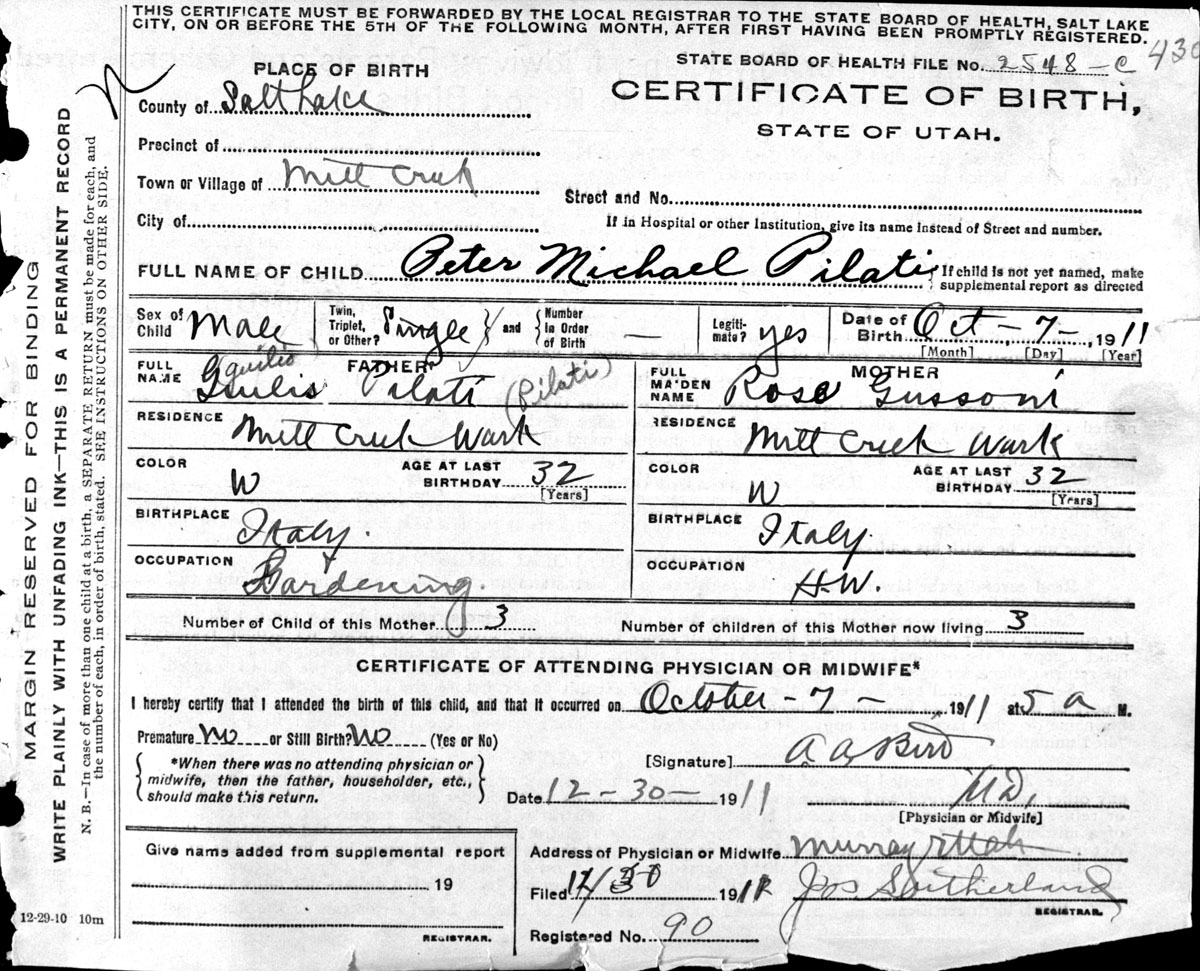 THIS CERTIFICATE MUST BE FORWARDED BY THE LOCAL REGISTRAR TO THE STATE BOARD OF HEALTH, SALT LAKE
CITY, ON OR BEFORE THE 5TH OF THE FOLLOWING MONTH, AFTER FIRST HAVING BEEN PROMPTLY REGISTERED.
STATE BOARD OF HEALTH FILE NO. 2548-C 430
CERTIFICATE OF BIRTH,
STATE OF UTAH.
PLACE OF BIRTH
County of Salt Lake
Precinct of
Town or Village of Mill Creek
Street and No.
City of
If in Hospital or other Institution, give its name instead of Street and number.
FULL NAME OF CHILD Peter Michael Pilati
{If child is not yet named, make
supplemental report as directed
Sex of Child Male
Twin, Triplet, or Other? Single } and { Number in Order of Birth —
Legiti-mate? yes
Date of Birth Oct - 7 - 1911
[Month] [Day] [Year]
FATHER
FULL NAME Giulis Pilati (Pilati)
RESIDENCE Mill Creek Wark
COLOR W
AGE AT LAST BIRTHDAY 32
[Years]
BIRTHPLACE Italy.
OCCUPATION Gardening.
MOTHER
FULL MAIDEN NAME Rose Gussoni
RESIDENCE Mill Creek Wark
COLOR W
AGE AT LAST BIRTHDAY 32
[Years]
BIRTHPLACE Italy.
OCCUPATION H.W.
Number of Child of this Mother 3
Number of children of this Mother now living 3
CERTIFICATE OF ATTENDING PHYSICIAN OR MIDWIFE*
I hereby certify that I attended the birth of this child, and that it occurred on October - 7 - 1911 at 5 a M.
Premature No or Still Birth? No (Yes or No)
{ *When there was no attending physician or
midwife, then the father, householder, etc.,
should make this return. }
[Signature] A. A. Bird
Date 12-30- 1911
M.D.
[Physician or Midwife]
Give name added from supplemental report
19
REGISTRAR.
Address of Physician or Midwife Murray Utah
Filed 191 Jos Sutherland
REGISTRAR.
Registered No. 90
12-29-10 10m
MARGIN RESERVED FOR BINDING
WRITE PLAINLY WITH UNFADING INK—THIS IS A PERMANENT RECORD
N. B.—In case of more than one child at a birth, a SEPARATE RETURN must be made for each, and
the number of each, in order of birth, stated. SEE INSTRUCTIONS ON OTHER SIDE.